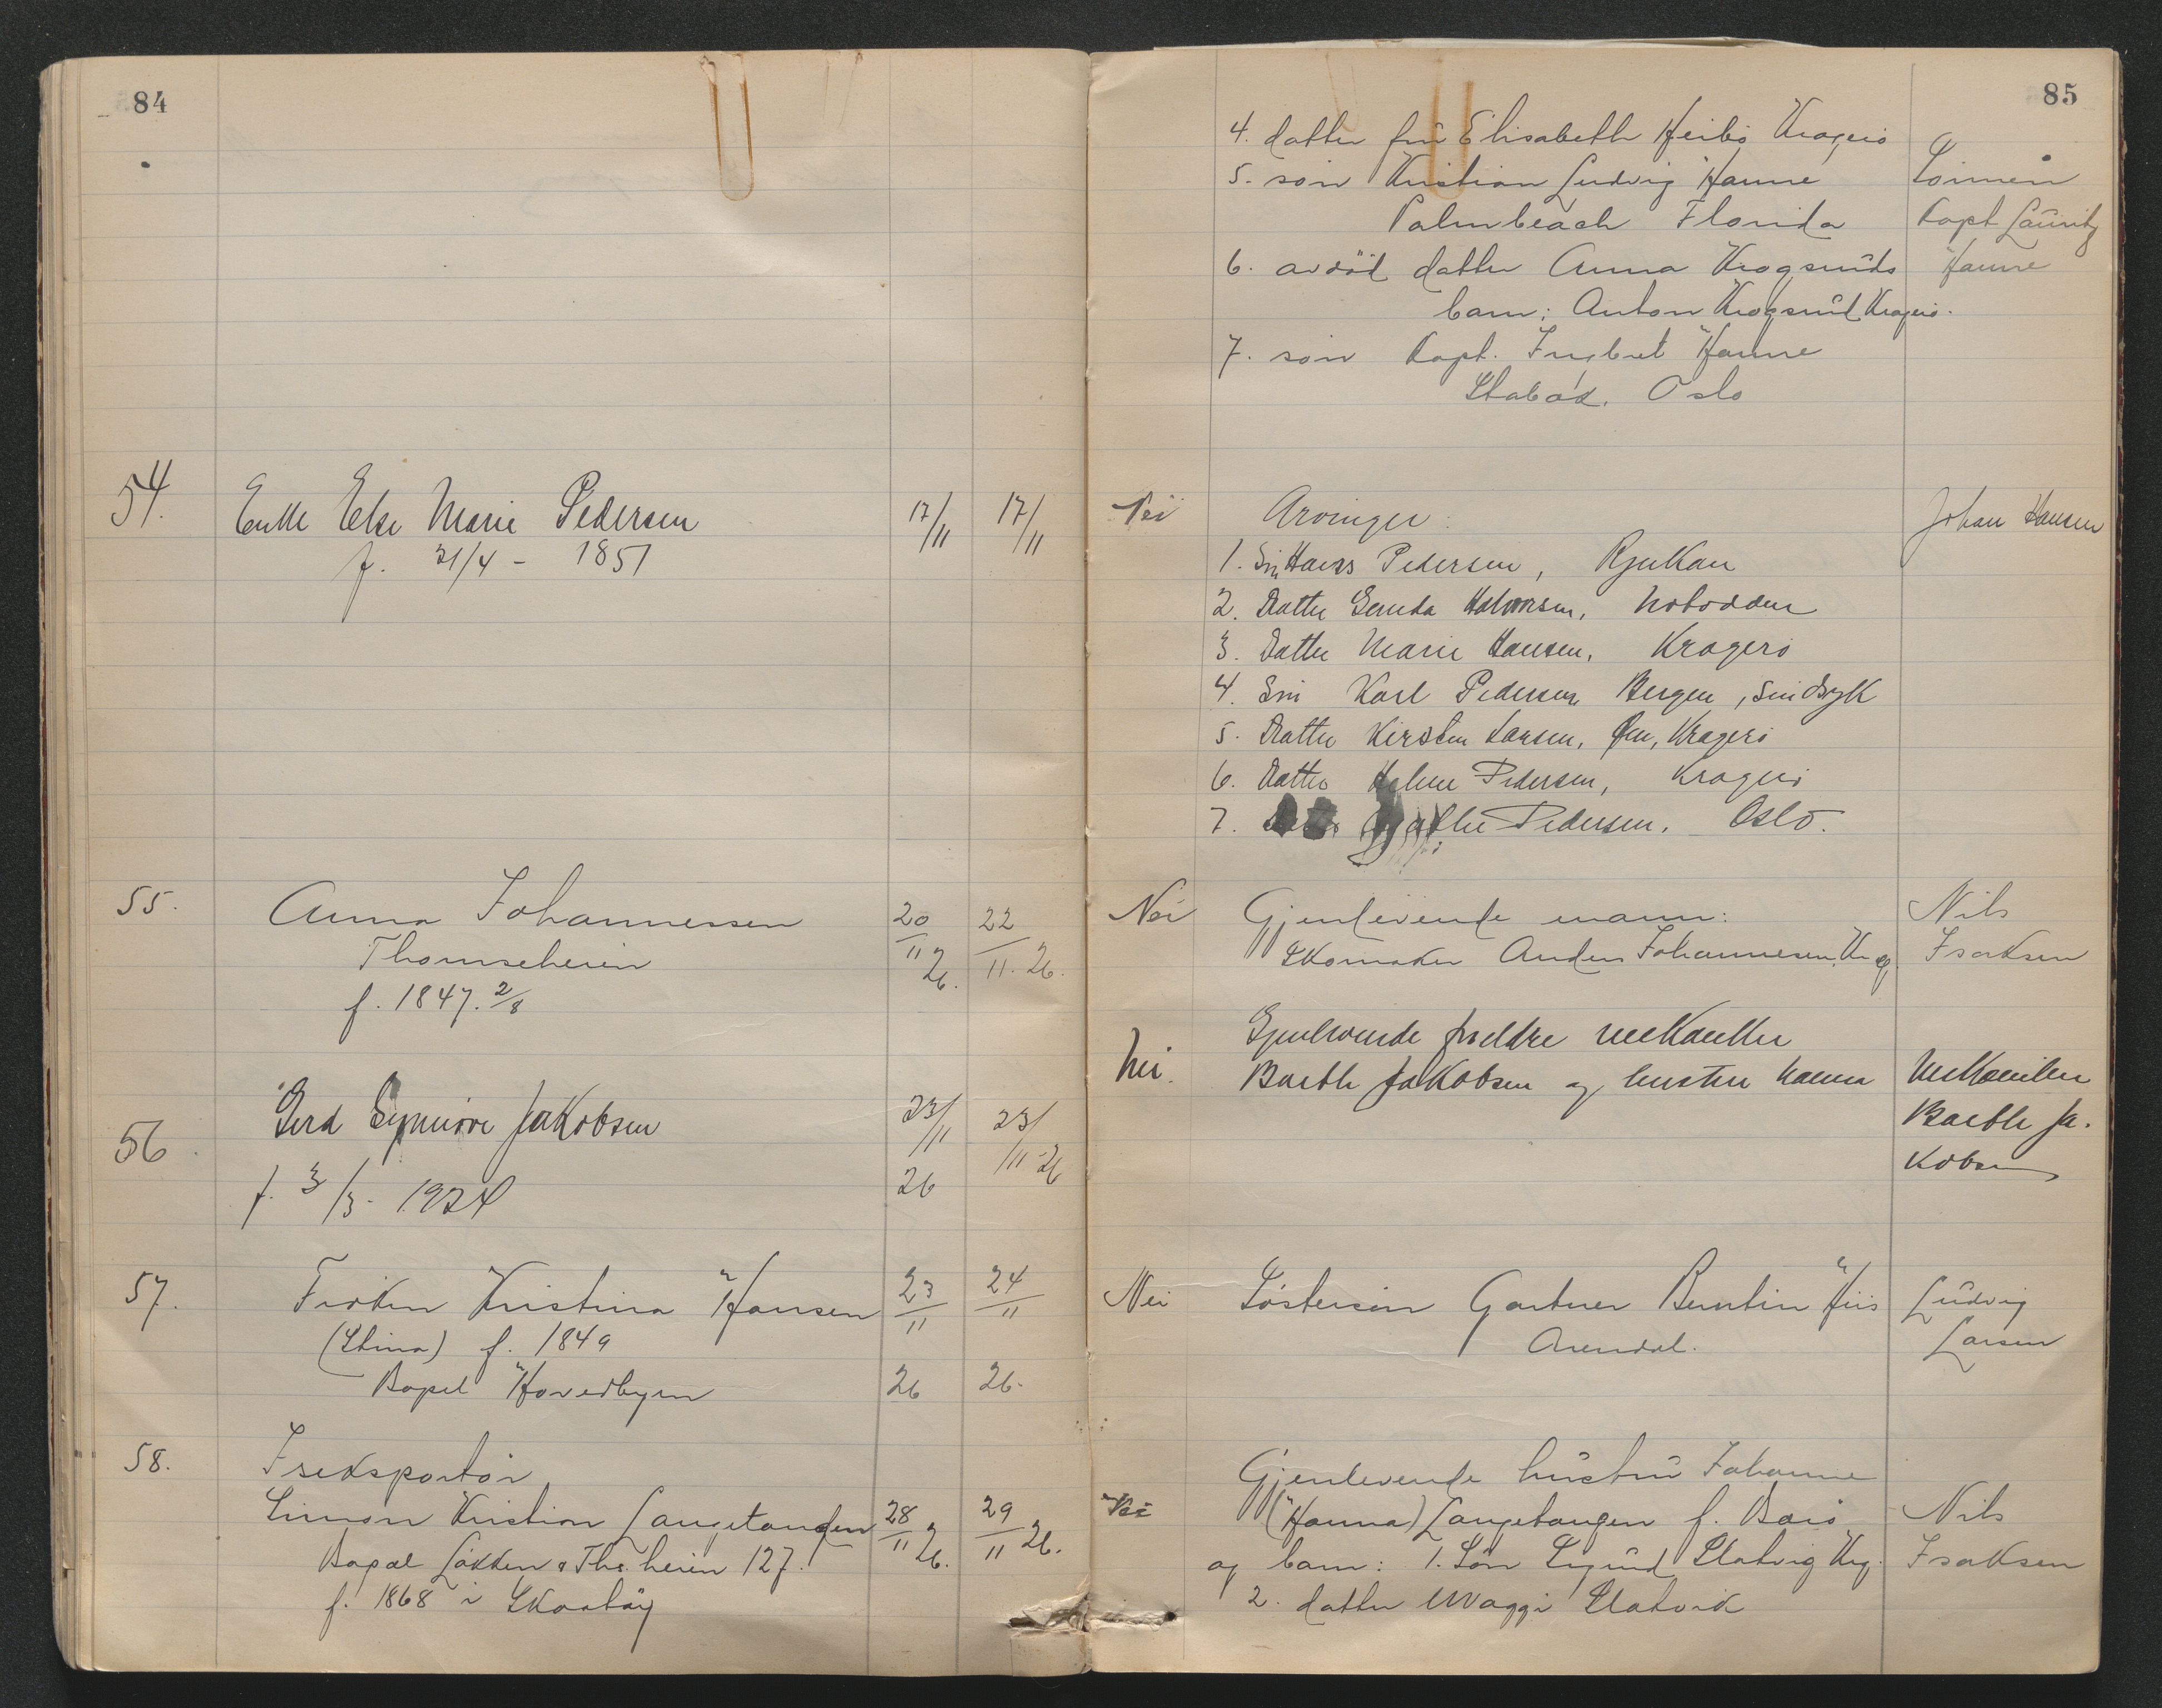 84
54.
Enke Else Marie Pedersen
17/11 17/11
f. 21/4 - 1851
55.
Anna Johannessen
20/11 26. 22/11. 26.
Thomseheien
f. 1847. 2/8
56.
Gerd Synnöve Jakobsen
23/11 26 23/11-26
f. 3/3- 1924
57.
Frøken Kristina Hansen
23/11 26 24/11 26.
(Stina) f. 1849
Bopel Hovedbyen
58.
Iseksportör
Simon Kristian Langetangen
28/11 26. 29/11 26.
Bopæl Løkken Ths. heien 127.
f. 1868 i Skaatöy
85
4. datter fru Elisabeth Heibö Kragerö
5. sön Kristian Ludvig Hanne
Palmbeach Florida
6. avdöd datter Anna Krogsruds
barn: Anton Krogsrud Kragerö.
7. sön Kapt. Ingbret Hanne
Stabæk. Oslo
Sönnen
Kapt Lauritz
Hanne
Nei
Arvinger:
Johan Hansen
1. Sön Hans Pedersen, Rjukan
2. Datter Geruda Halvorsen, Notodden
3. Datter Marie Hansen, Kragerö
4. Sön Karl Pedersen Bergen, sindsyk
5. Datter Kirsten Larsen, Øen, Kragerö
6. Datter Helene Pedersen, Kragerö
7. Pedersen, Oslo.
Nei
Gjenlevende mann:
Nils
Skomaker Anders Johannesen, Krag.
Isaksen
Nei.
Gjenlevende forældre mekaniker
Barth Jakobsen og hustru Hanna
Mekaniker
Barth Ja-
kobsen
Nei
Søstersön Gartner Berntin Hiis
Arendal.
Ludvig
Larsen
Nei
Gjenlevende hustru Johanne
(Hanna) Langetangen f. Barö
Nils
og barn: 1. Sön Sigurd Slatvig Krg.
Isaksen
2. datter Maggi Slatvik